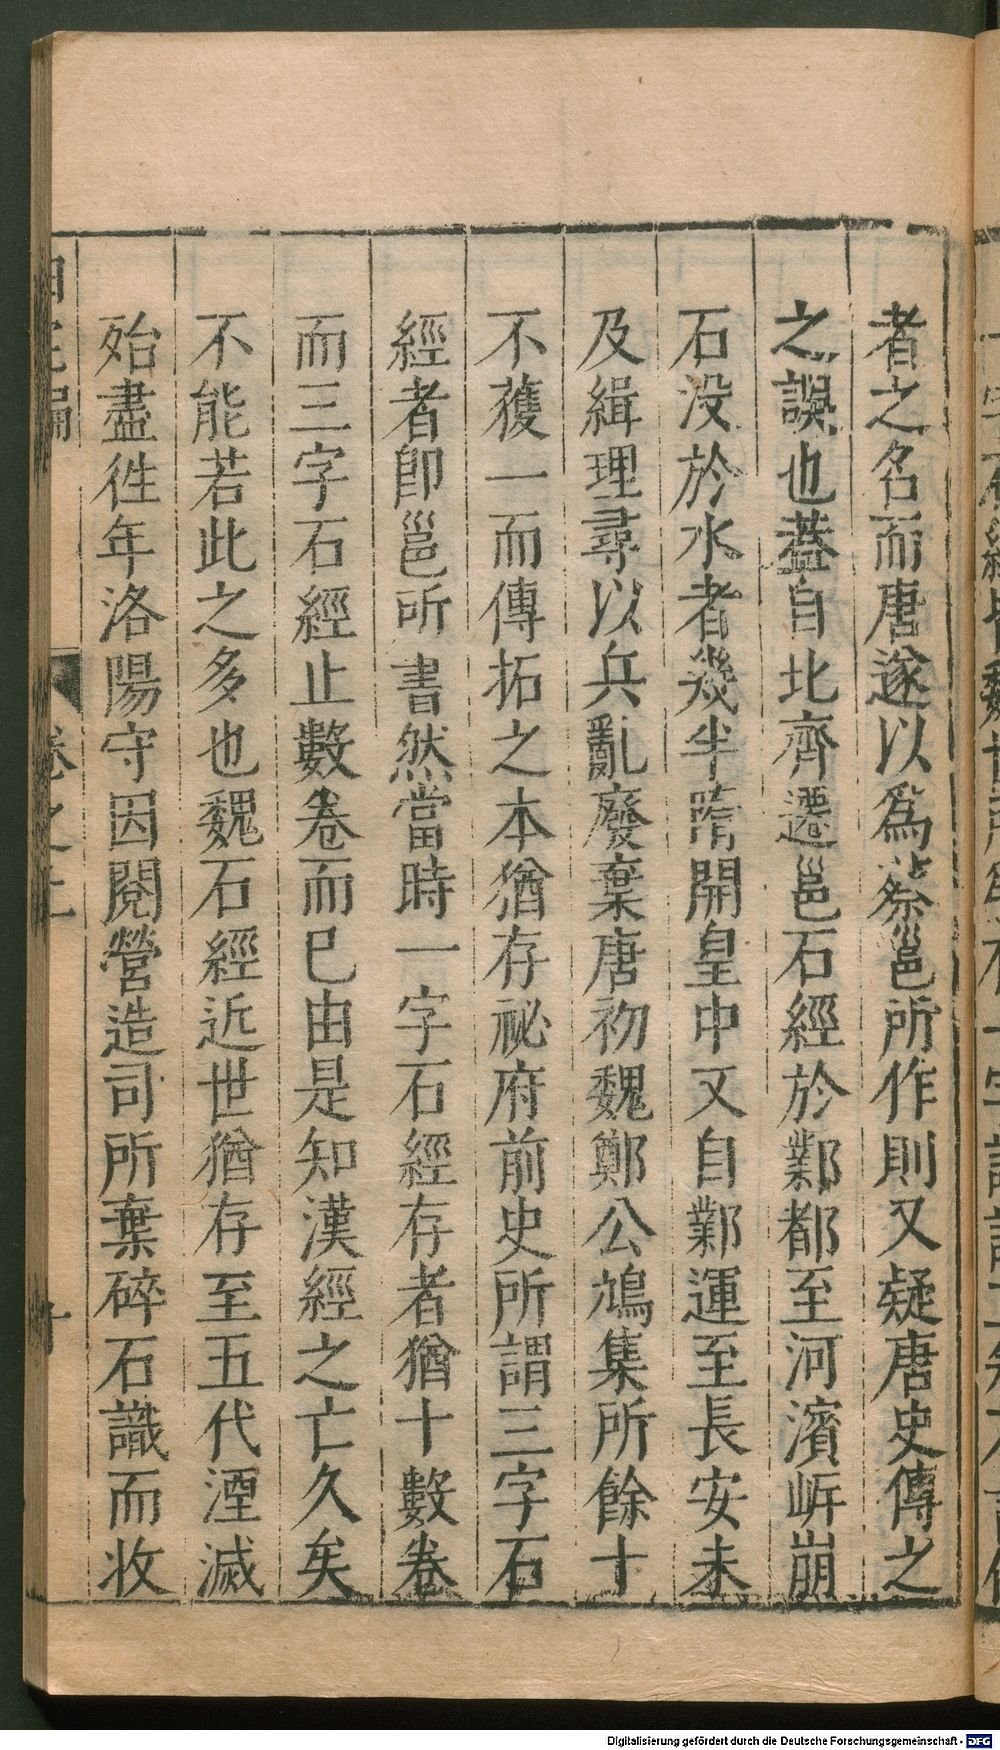 者之名而唐遂以為蔡邕所作則又疑唐史傳之
之誤也葢自北齊遷邕石經於鄴都至河濱岍崩
石没於水者幾半隋開皇中又自鄴運至長安未
及緝理尋以兵亂廢棄唐初魏鄭公鳩集所餘十
不獲一而傳拓之本猶存祕府前史所謂三字石
經者卽邕所書然當時一字石經存者猶十數卷
而三字石經止數卷而已由是知漢經之亡久矣
不能若此之多也魏石經近世猶存至五代湮滅
殆盡徃年洛陽守因閱營造司所棄碎石識而收
卷之上
十
Digitalisierung gefördert durch die Deutsche Forschungsgemeinschaft - DFG